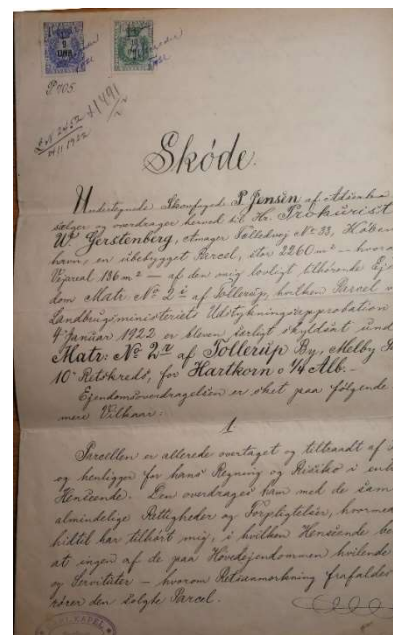 P 705.
+1491
Skøde.
Undertegnede Skovfoged P. Jensen af
sælger og overdrager herved til Hr. Prokurist
W. Gerstenberg, Amager Fælledvej No 33, Køben-
havn, en ubebygget Parcel, stor 2260 m² – hvoraf
Vejareal 136 m² – af den mig lovligt tilhørende Ejen-
dom Matr. No 2 i af Tollerup, hvilken Parcel
Landbrugsministeriets Udstykningsapprobation
4' Januar 1922 er bleven særligt skyldsat und
Matr: No 2 af Tollerup By, Melby
10' Retskreds, for Hartkorn 0 ¼ Alb. –
Ejendomsoverdragelsen er sket paa følgende
mere Vilkaar:
1
Parcellen er allerede overtaget og tiltraadt af
og henligger for hans Regning og Risiko i enh
Henseende. Den overdrages ham med de sam
almindelige Rettigheder og Forpligtelser, hvormed
hidtil har tilhørt mig, i hvilken Henseende be
at ingen af de paa Hovedejendommen hvilende
og Servituter – hvorom Retsanmærkning frafaldes
rører den solgte Parcel.